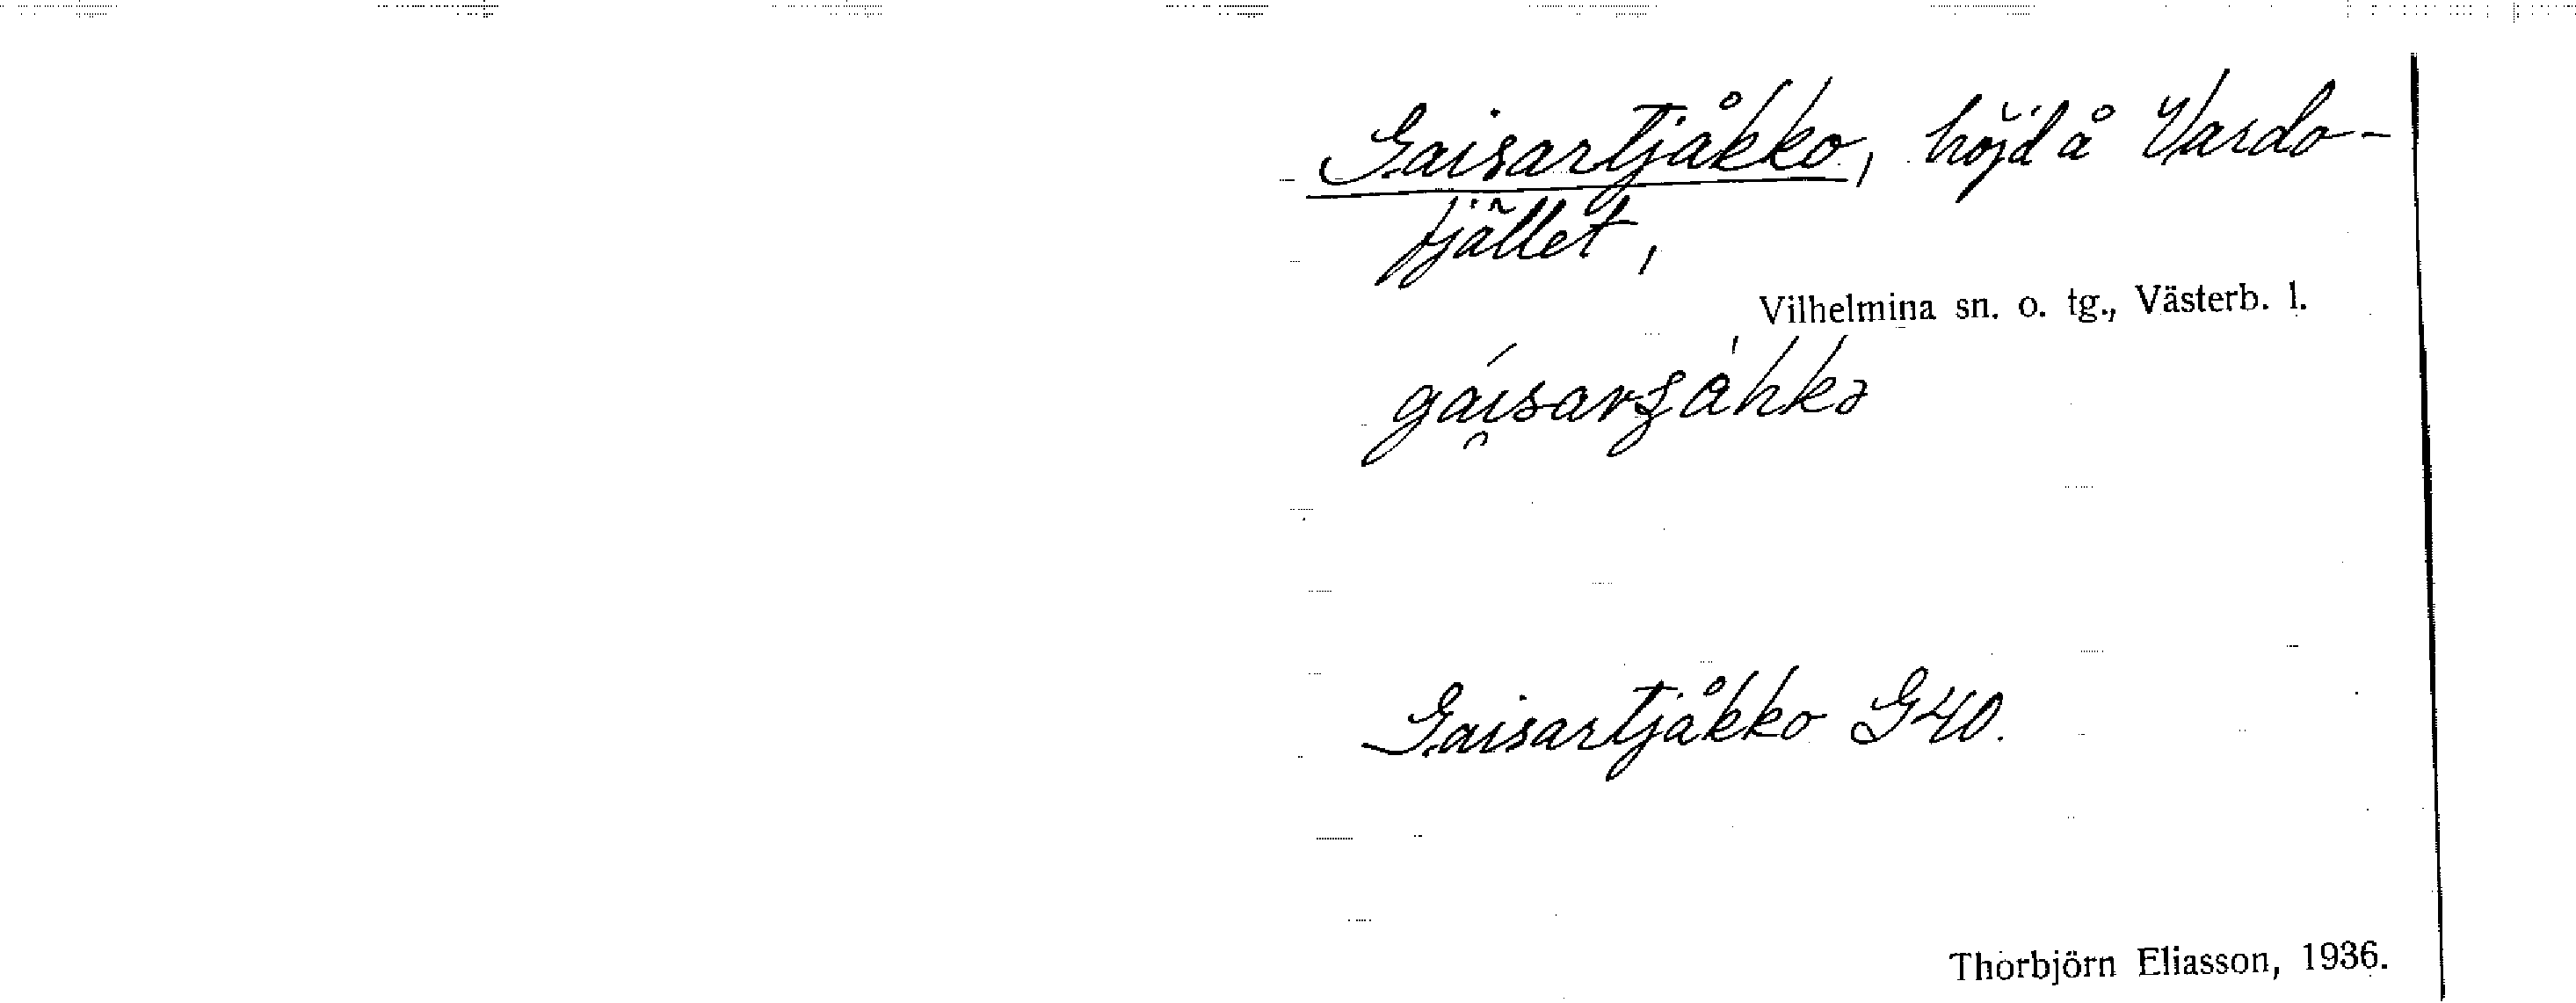 Gaisartjåkko, höjd å Vardo-
fjället,
Vilhelmina sn. o. tg., Västerb. l.
Gaisartjåkko G40.
Thorbjörn Eliasson, 1936.